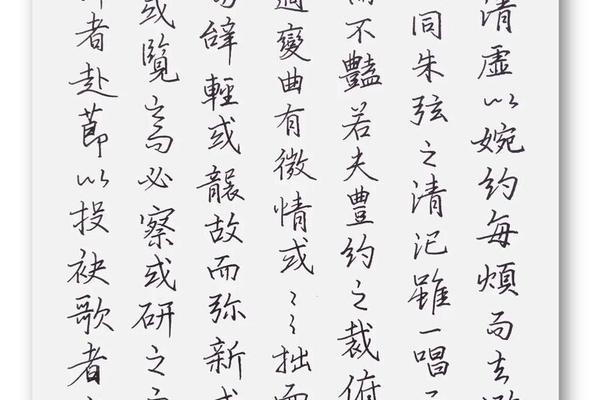 清虛以婉約每煩而去
同朱弦之清氾雖一唱
而不豔若夫豐約之裁俯
適變曲有微情或拙而
輕或襲故而弥新或
或覽之而必察或研之
者赴節以投袂歌者